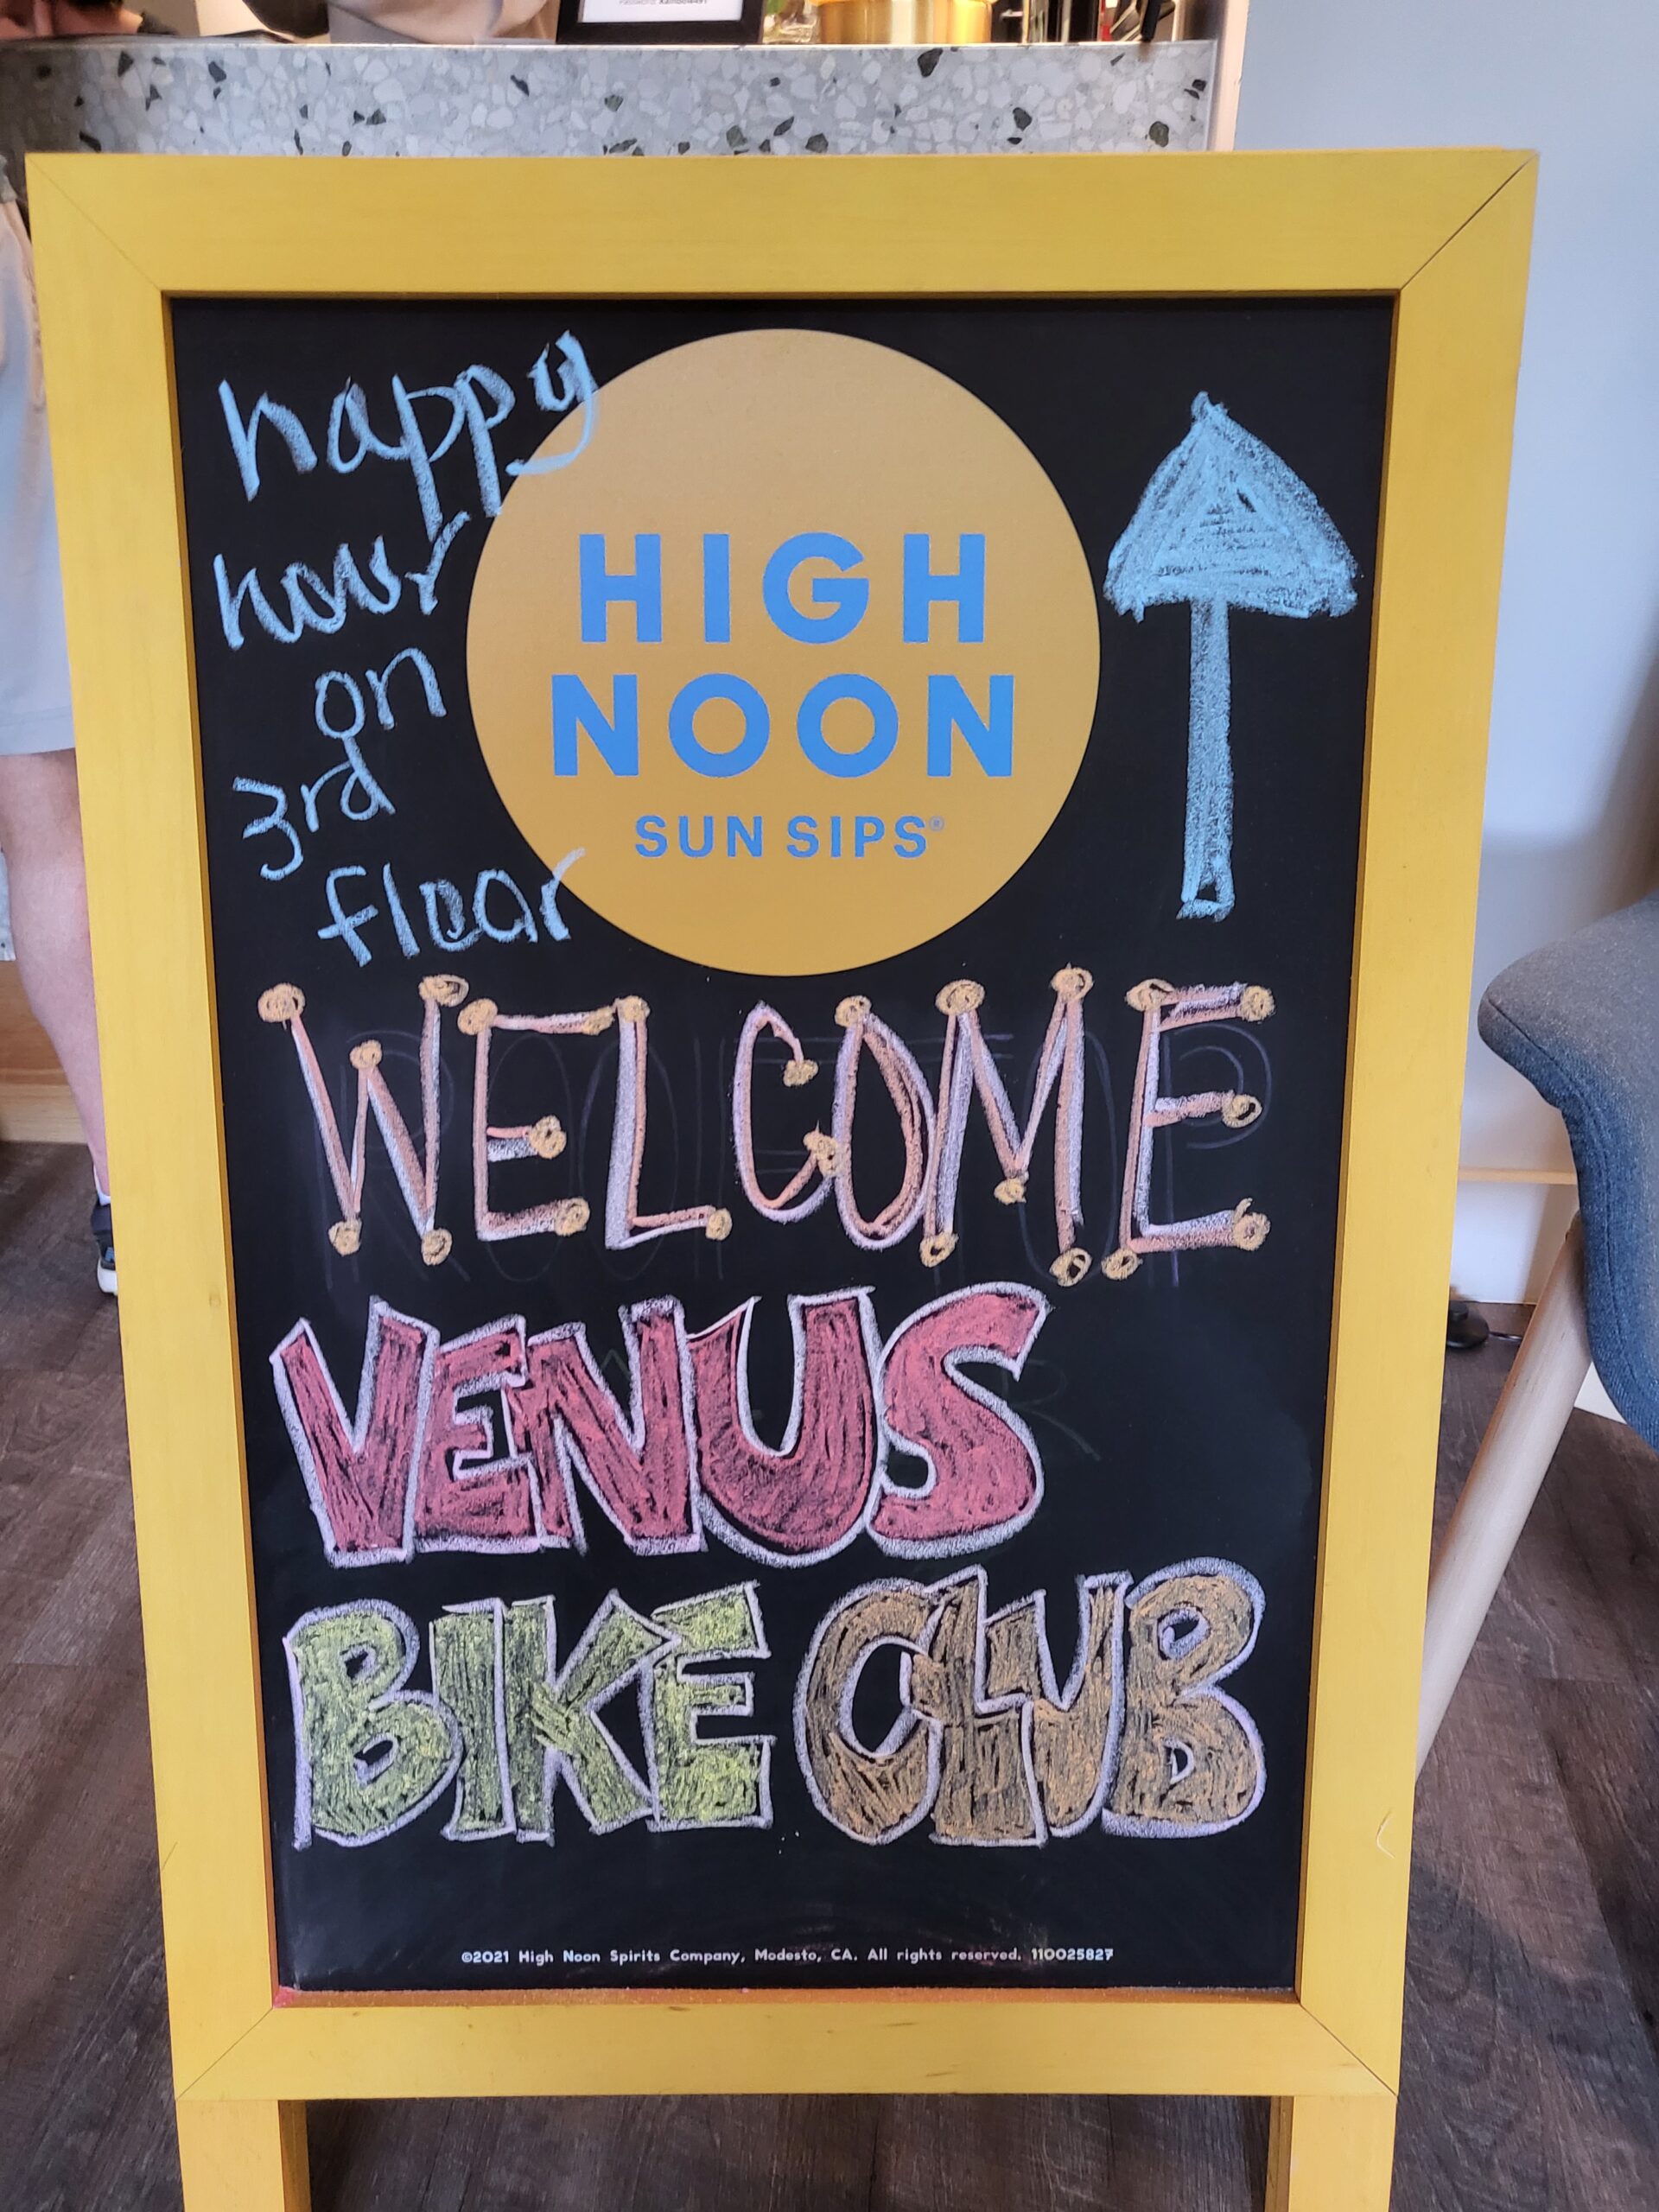 happy
hour
on
3rd
floor
HIGH
NOON
SUN SIPS®
WELCOME
VENUS
BIKE CLUB
©2021 High Noon Spirits Company, Modesto, CA. All rights reserved. 110025827